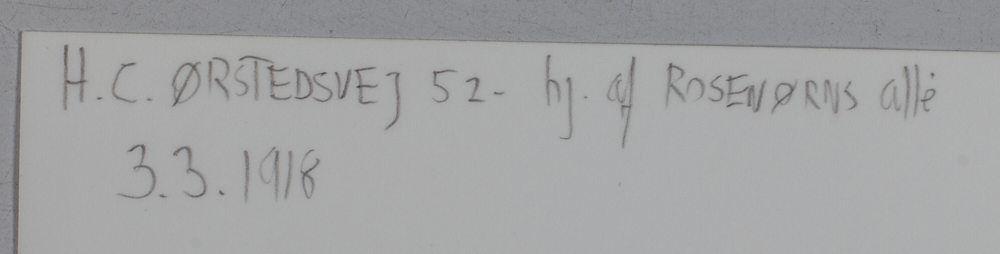 H.C. ØRSTEDSVEJ 52- hj. af ROSENØRNS allé
3.3.1918